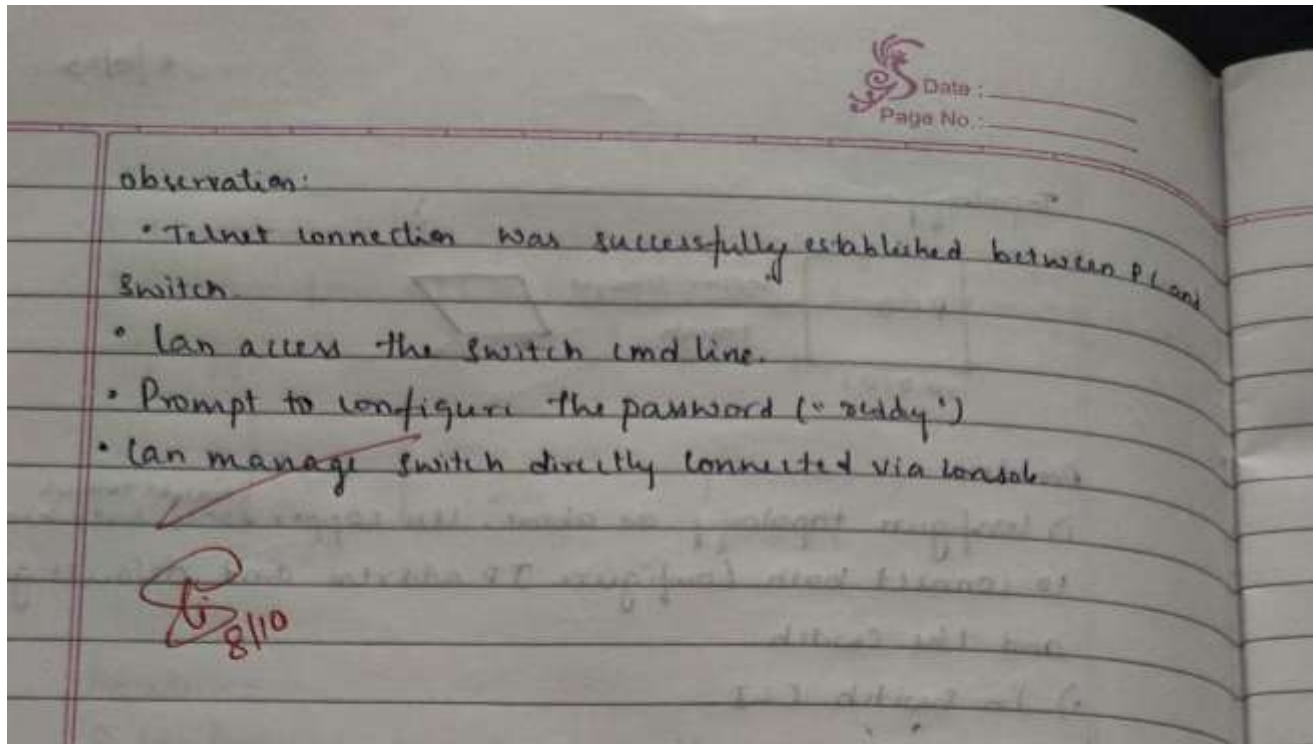 Date :
Page No. :
observation:
• Telnet connection was successfully established between PC and
switch.
• Can access the switch cmd line.
• Prompt to configure the password ("reddy")
• Can manage switch directly connected via console
8/10